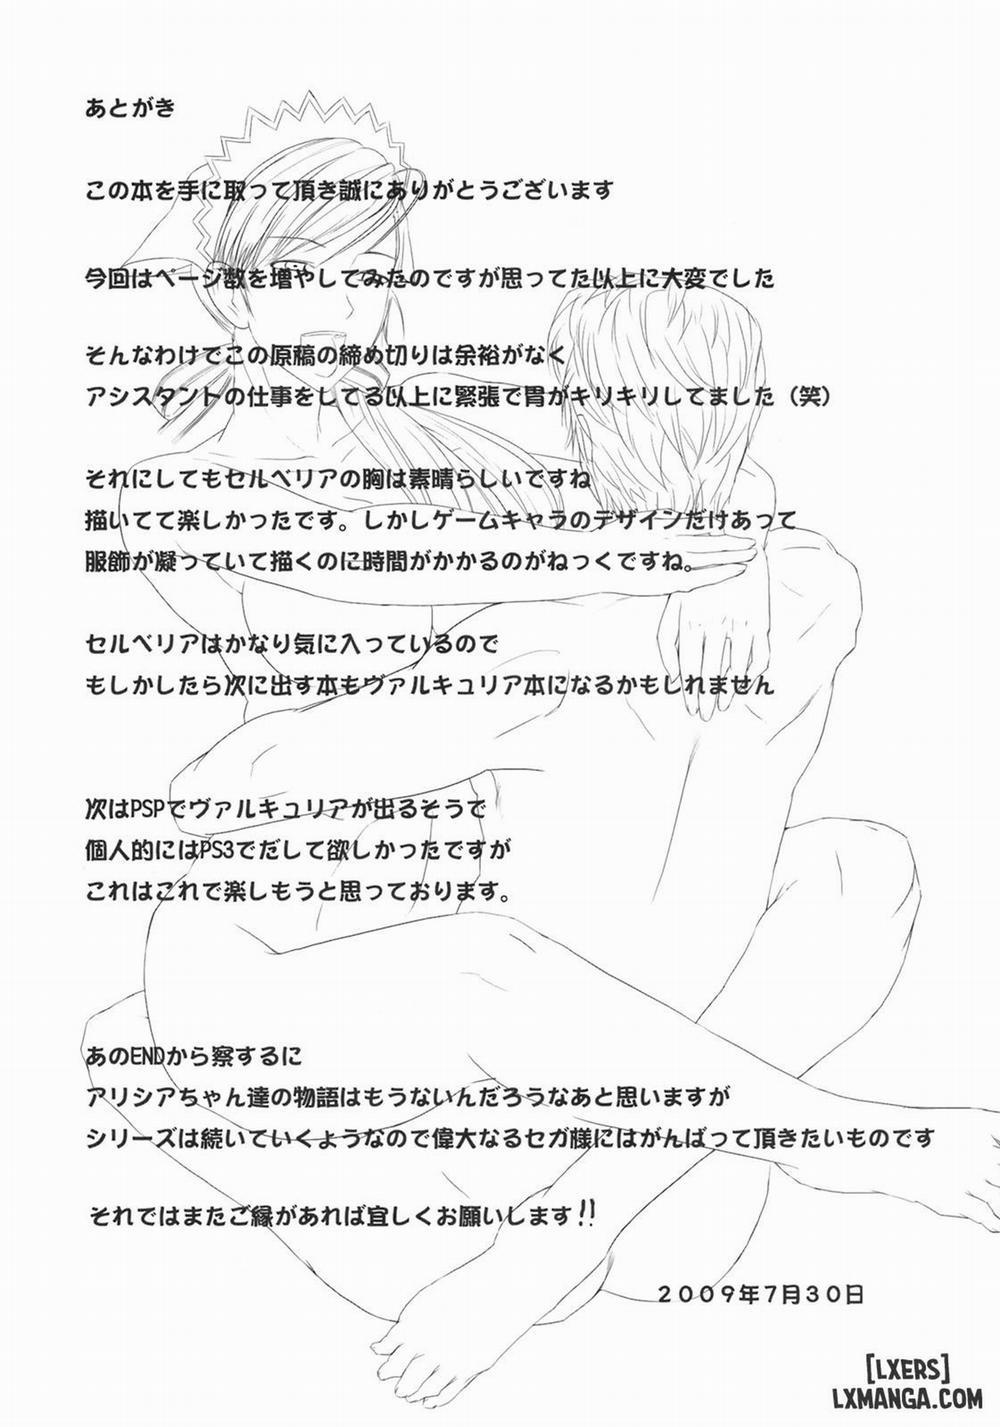 あとがき
この本を手に取って頂き誠にありがとうございます
今回はページ数を増やしてみたのですが思ってた以上に大変でした
そんなわけでこの原稿の締め切りは余裕がなく
アシスタントの仕事をしてる以上に緊張で胃がキリキリしてました（笑）
それにしてもセルベリアの胸は素晴らしいですね
描いてて楽しかったです。しかしゲームキャラのデザインだけあって
服飾が凝っていて描くのに時間がかかるのがねっくですね。
セルベリアはかなり気に入っているので
もしかしたら次に出す本もヴァルキュリア本になるかもしれません
次はPSPでヴァルキュリアが出るそうで
個人的にはPS3でだして欲しかったですが
これはこれで楽しもうと思っております。
あのENDから察するに
アリシアちゃん達の物語はもうないんだろうなあと思いますが
シリーズは続いていくようなので偉大なるセガ様にはがんばって頂きたいものです
それではまたご縁があれば宜しくお願いします!!
２００９年７月３０日
[LXERS]
LXMANGA.COM